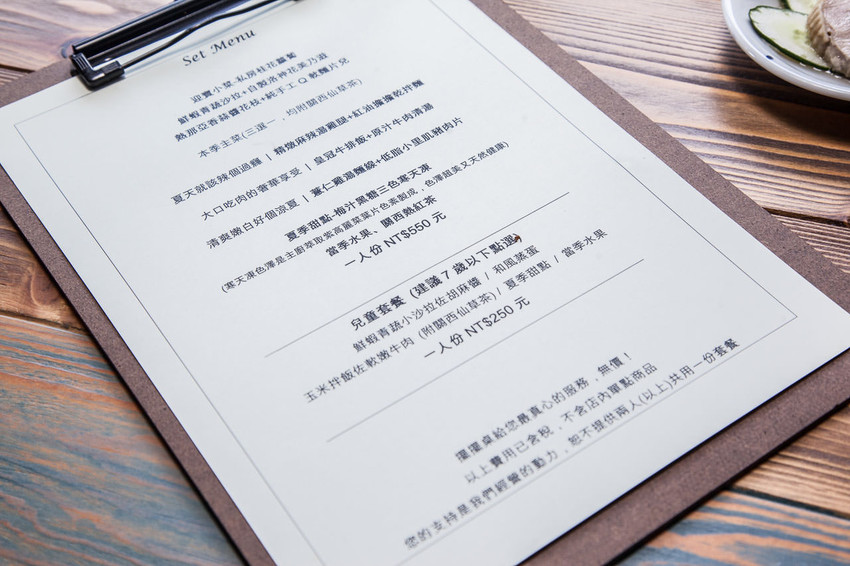 Set Menu
迎賓小菜-私房桂花蘿蔔
鮮蝦青蔬沙拉+自製洛神花美乃滋
熱那亞香蒜醬花枝+純手工Q軟麵片兒
本季主菜(三選一，均附關西仙草茶)
夏天就該辣個過癮 | 精燉麻辣湯雞腿+紅油擔擔乾拌麵
大口吃肉的奢華享受 | 皇冠牛排飯+原汁牛肉清湯
清爽嫩白好個涼夏 | 薏仁雞湯麵線+低脂小里肌豬肉片
夏季甜點-梅汁黑糖三色寒天凍
(寒天凍色澤是主廚萃取紫高麗菜葉片色素製成，色澤超美又天然健康)
當季水果、關西熱紅茶
一人份 NT$550 元
兒童套餐 (建議 7 歲以下點選)
鮮蝦青蔬小沙拉佐胡麻醬 / 和風蒸蛋
玉米拌飯佐軟嫩牛肉 (附關西仙草茶) / 夏季甜點 / 當季水果
一人份 NT$250 元
擺擺桌給您最真心的服務，無價！
以上費用已含稅，不含店內單點商品
您的支持是我們經營的動力，恕不提供兩人(以上)共用一份套餐